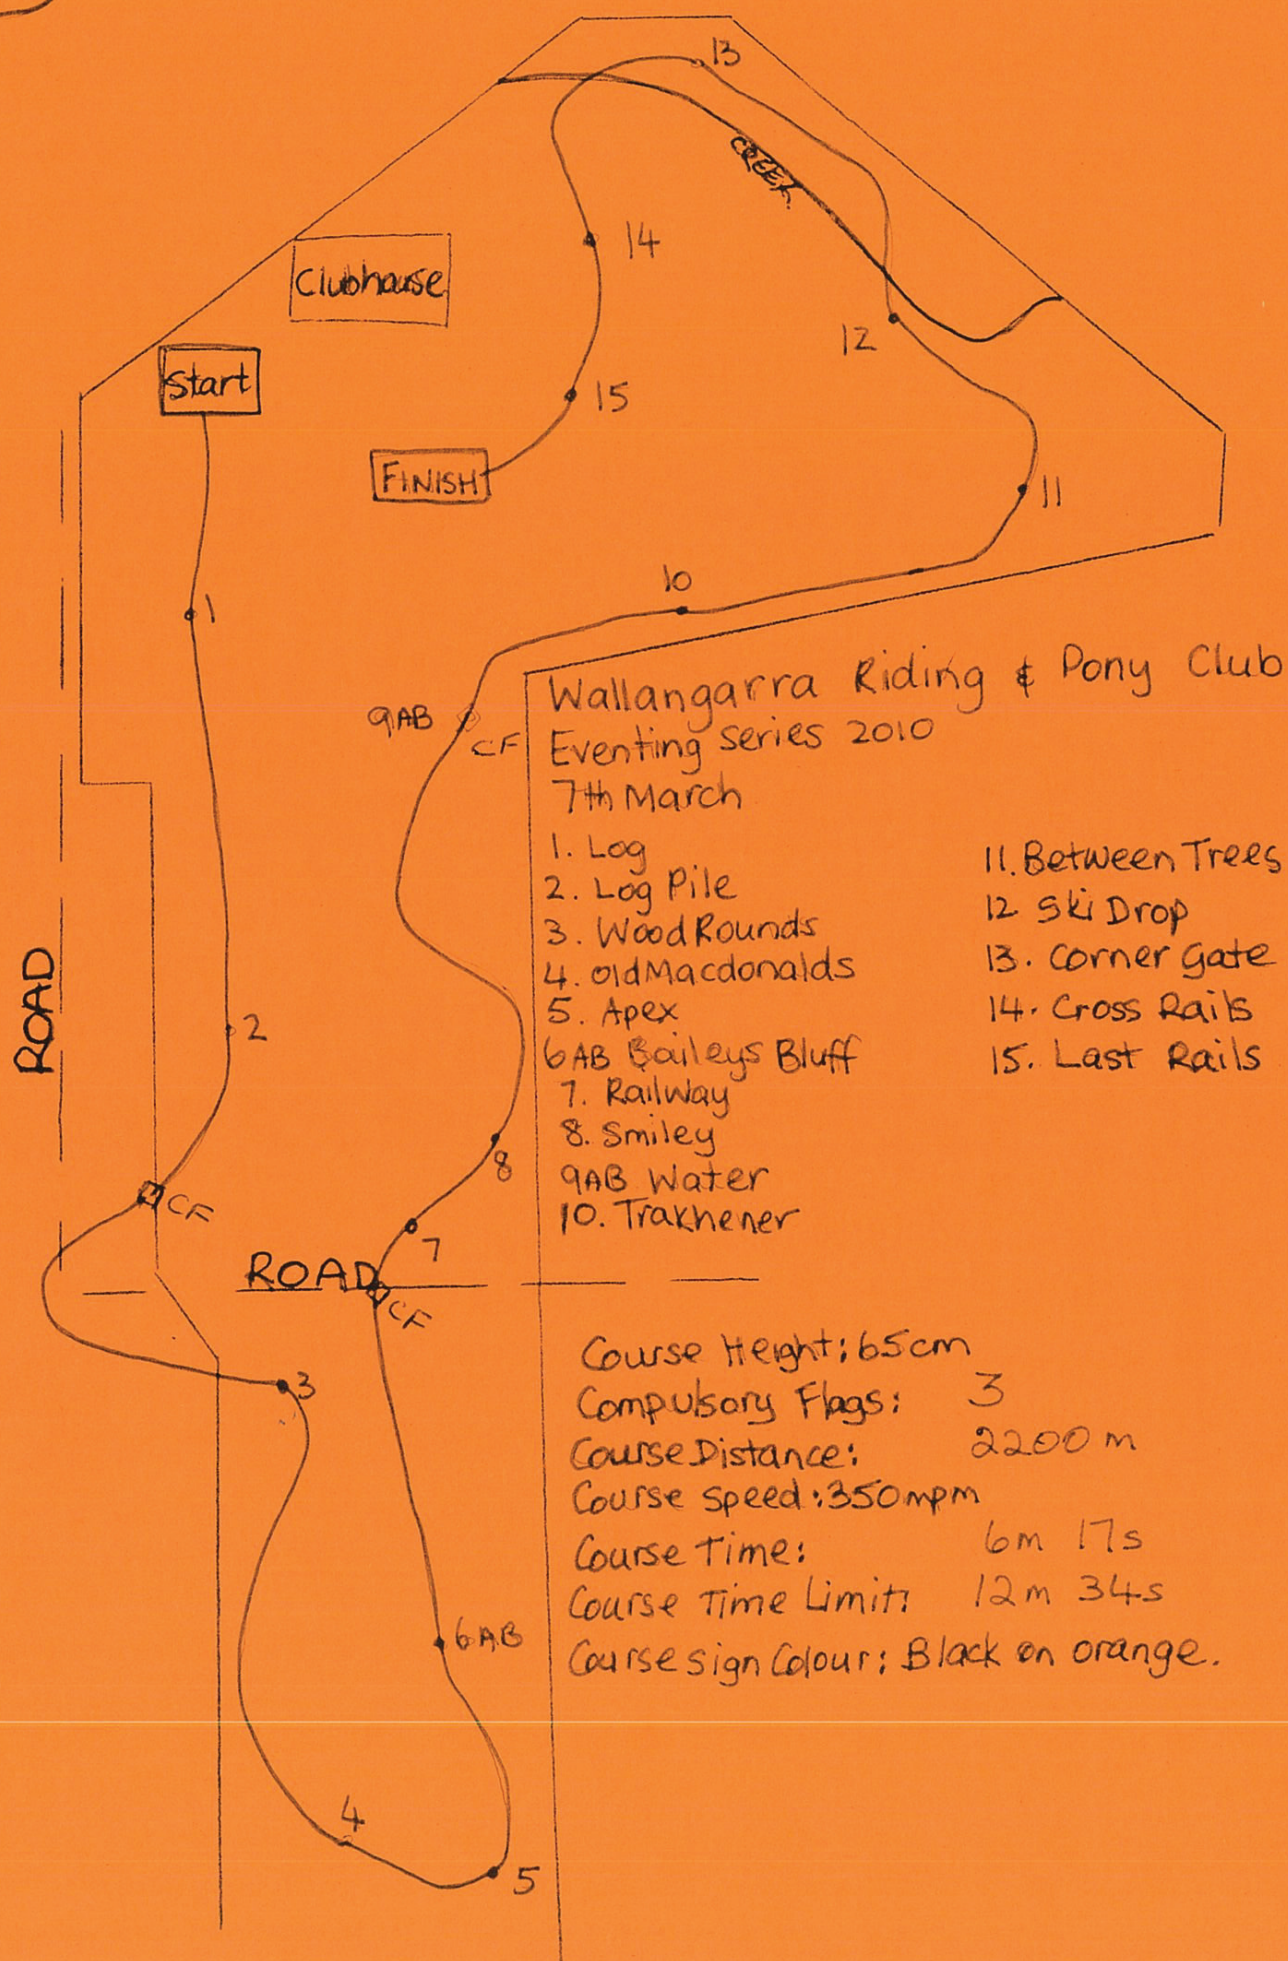 13
CREEK.
14
Clubhouse
12
Start
15
FINISH
11
10
1
Wallangarra Riding & Pony Club
9AB
CF
Eventing Series 2010
7th March
1. Log
2. Log Pile
3. Wood Rounds
4. Old Macdonalds
5. Apex
6AB Baileys Bluff
7. Railway
8. Smiley
9AB Water
10. Trakhener
11. Between Trees
12 Ski Drop
13. Corner Gate
14. Cross Rails
15. Last Rails
ROAD
2
8
CF
7
ROAD
CF
3
Course Height: 65cm
Compulsory Flags: 3
Course Distance: 2200 m
Course Speed: 350mpm
Course Time: 6m 17s
Course Time Limit: 12m 34s
Course sign Colour: Black on orange.
6AB
4
5